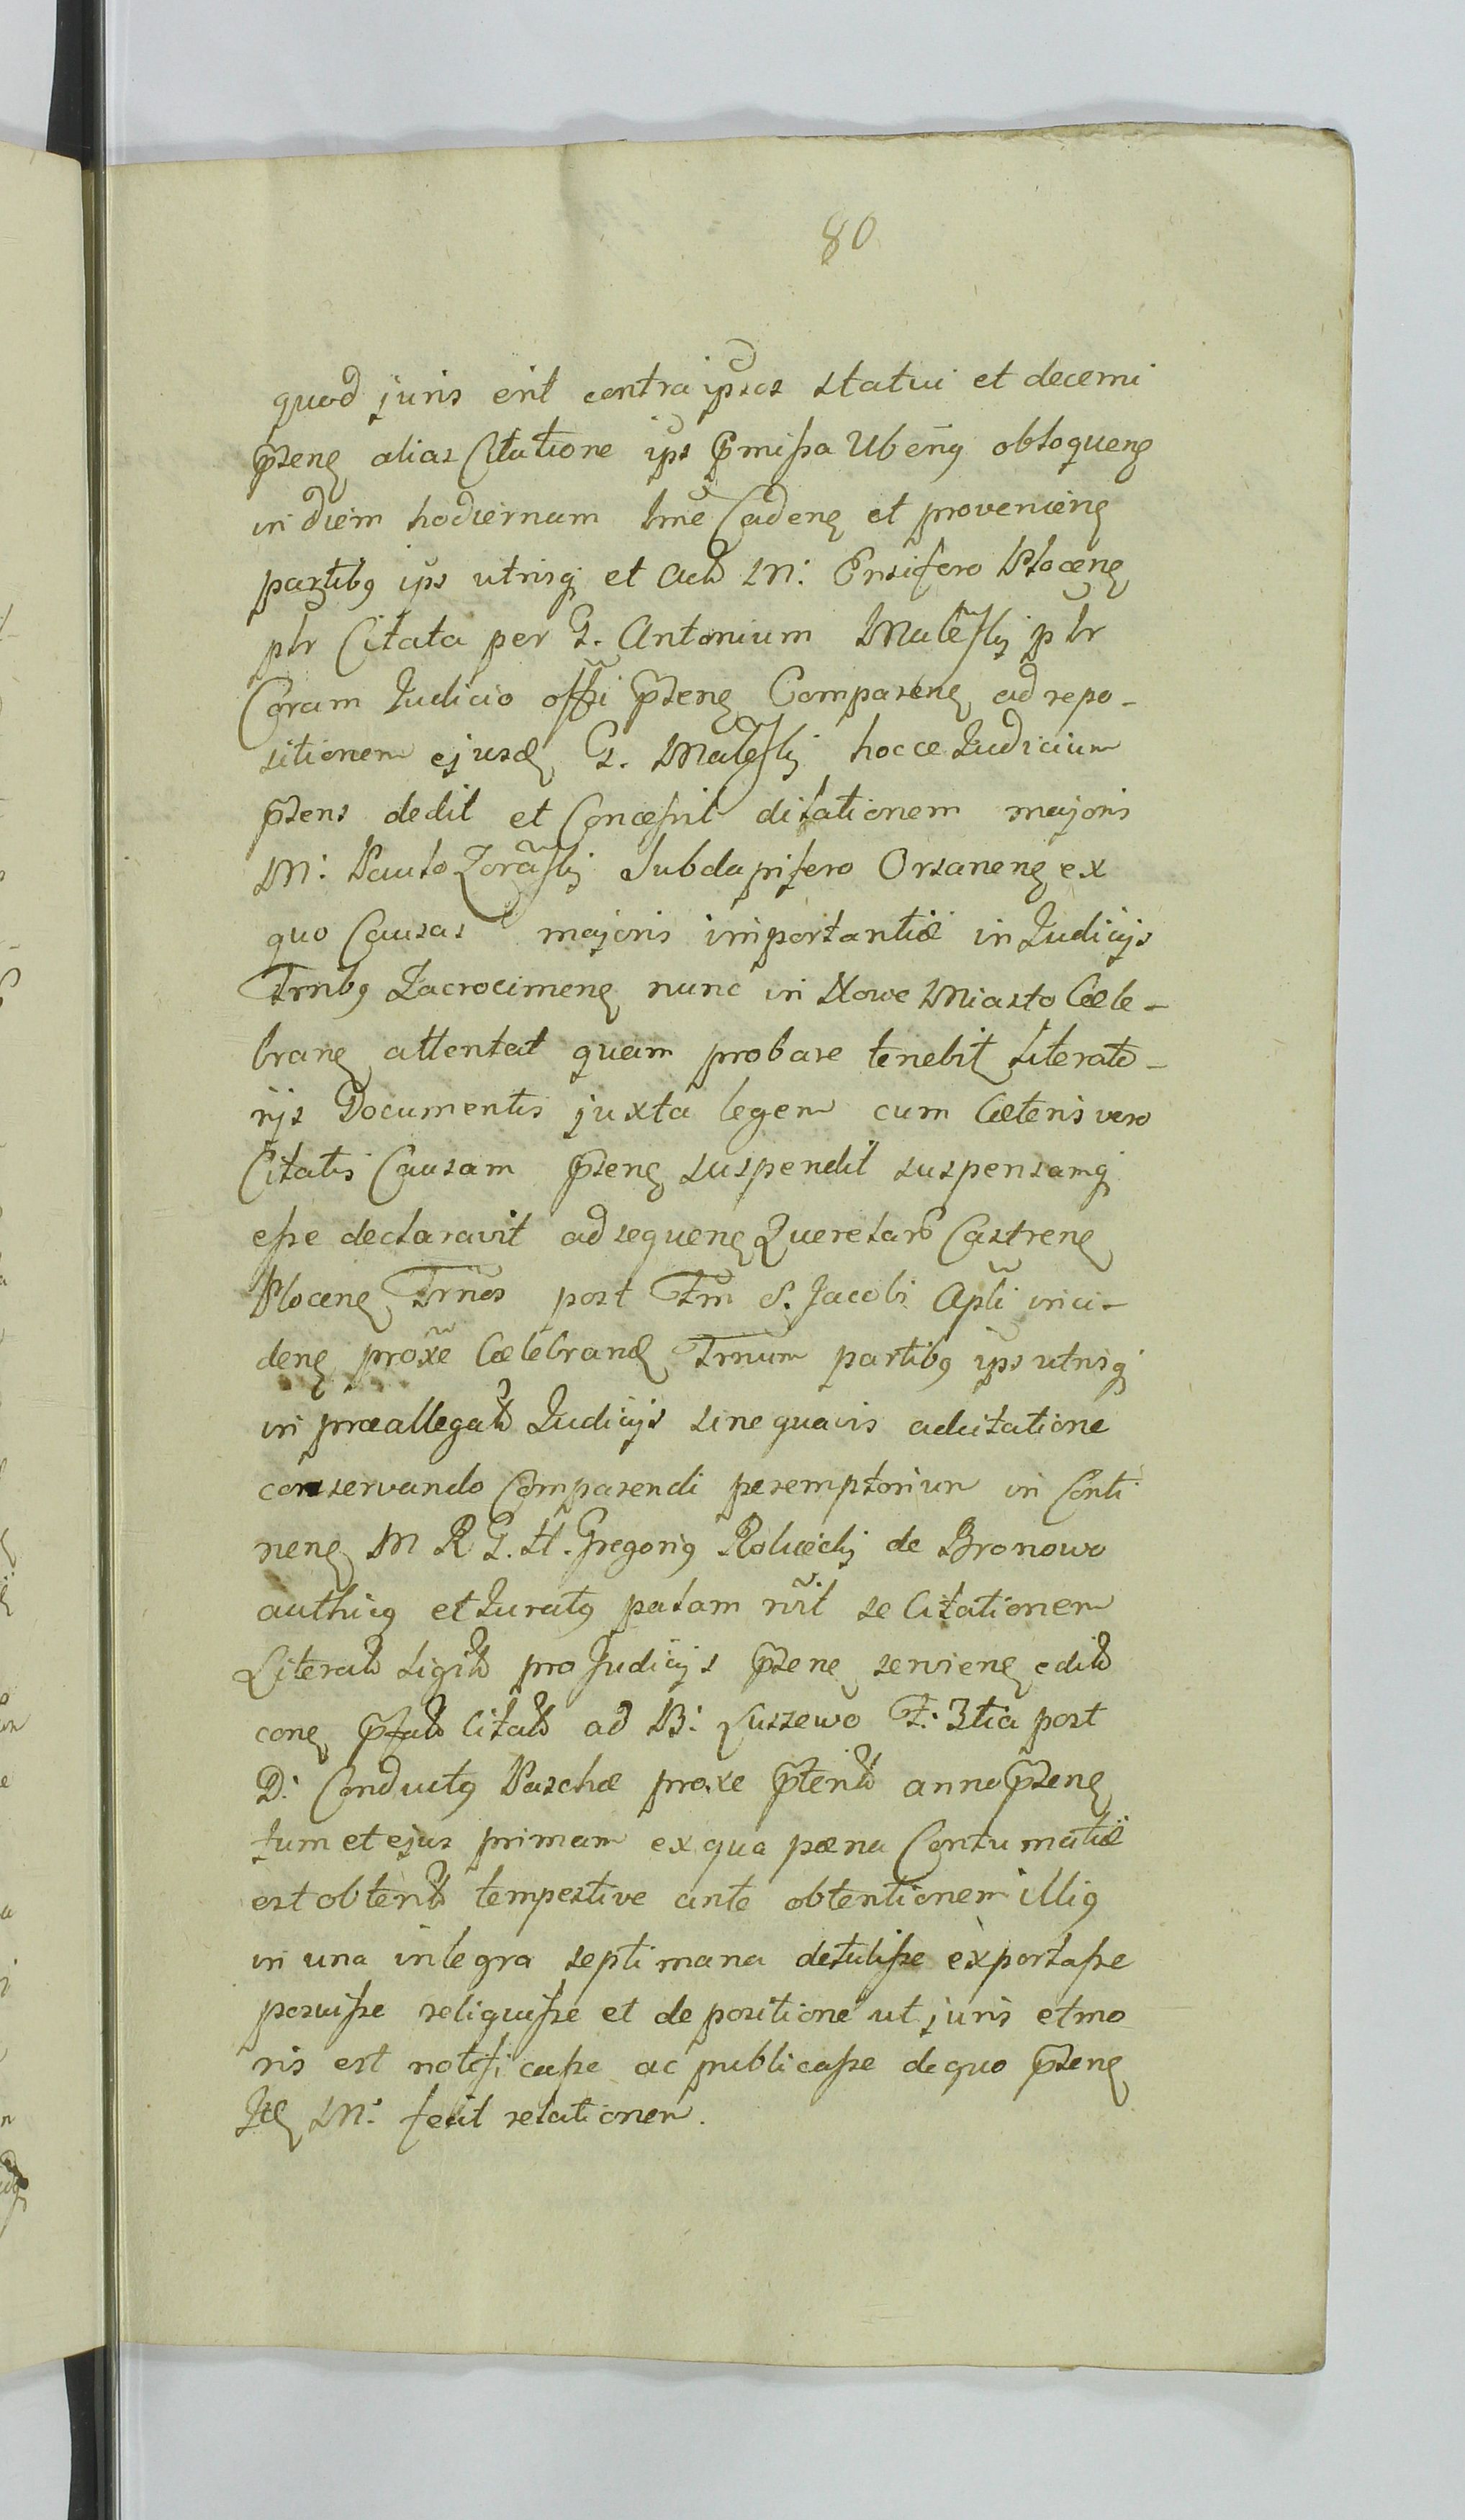 80
quod juris erit contra ipsos statui et decerni
p̃sens alias Citatione ips p̃missa Ubeng obloqueng
in diem hodiernum tme Cadeng et provenieng
partibg ips utrisq et Actt M: Ensifero Ploceng
ptr Citata per G. Antonium Maleſkj ptr
Coram Judicio offi p̃seng Compareng ad repo-
sitionem ejusd G. Maleſkj hocce Judicium
p̃sens dedit et Concessit dilationem majoris
M: Paulo Zoraſkj Subdapifero Orsaneng ex
quo Causas majoris importantiæ in Judicijs
Trnbg Zacrocimeng nunc in Nowe Miasto Cæle-
brang attentat quam probare tenebit Literato-
rijs Documentis juxta legem cum Cæteris vero
Citatis Causam p̃seng suspendit suspensamq
esse declaravit ad sequeng Querelar Castreng
Ploceng Trños post Fm S. Jacobi Apli inci-
deng proxe Cælebrand Trnum partibg ips utrisq
in præallegatt Judicijs sine quavis adcitatione
conservando Comparendi peremptorium in Conti
neng M R G. H. Gregorig Rolviechj de Bronowo
authicg et Juratg palam rñit se Citationem
Literatt sigitt pro Judicijs p̃seng servieng editt
cong p̃fatt Citatt ad B: Luszewo F: 3tia post
D: Conductg Paschæ proxe p̃teritt anno p̃seng
tum et ejus primam ex qua pæna Contumatiæ
est obtentt tempestive ante obtentionem illig
in una integra septimana detulisse exportasse
posuisse reliquisse et de positione ut juris et mo
ris est notificasse ac publicasse de quo p̃seng
Jtt M: fecit relationem.